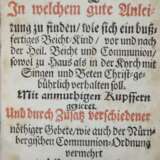 In welchem gute Anlei-
tung zu finden / wie sich ein buß-
fertiges Beicht Kind / vor und nach
der Heil. Beicht und Communion /
sowol zu Haus als in der Kirch mit
Singen und Beten Christ-ge-
bührlich verhalten soll.
Mit anmuthigen Kupffern
gezieret.
Und durch Zusatz verschiedener
nöthiger Gebete / wie auch der Nürn-
bergischen Communion-Ordnung
vermehrt